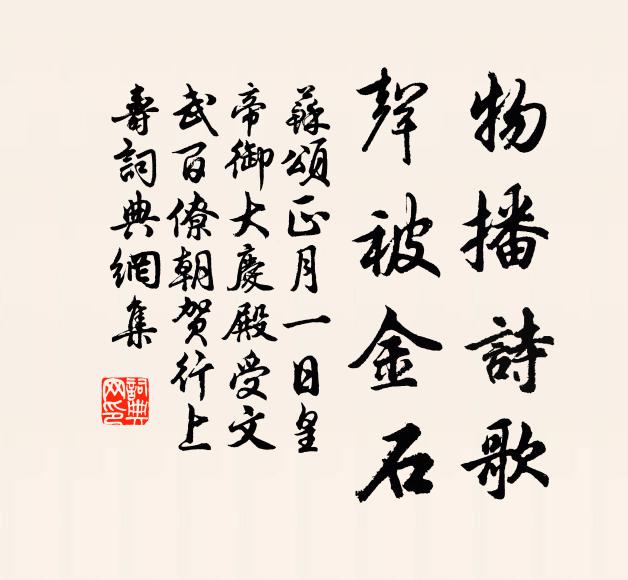 物播詩歌
聲被金石
蘇頌正月一日皇
帝御大慶殿受文
武百僚朝賀行上
壽詞典網集
詞典
网印